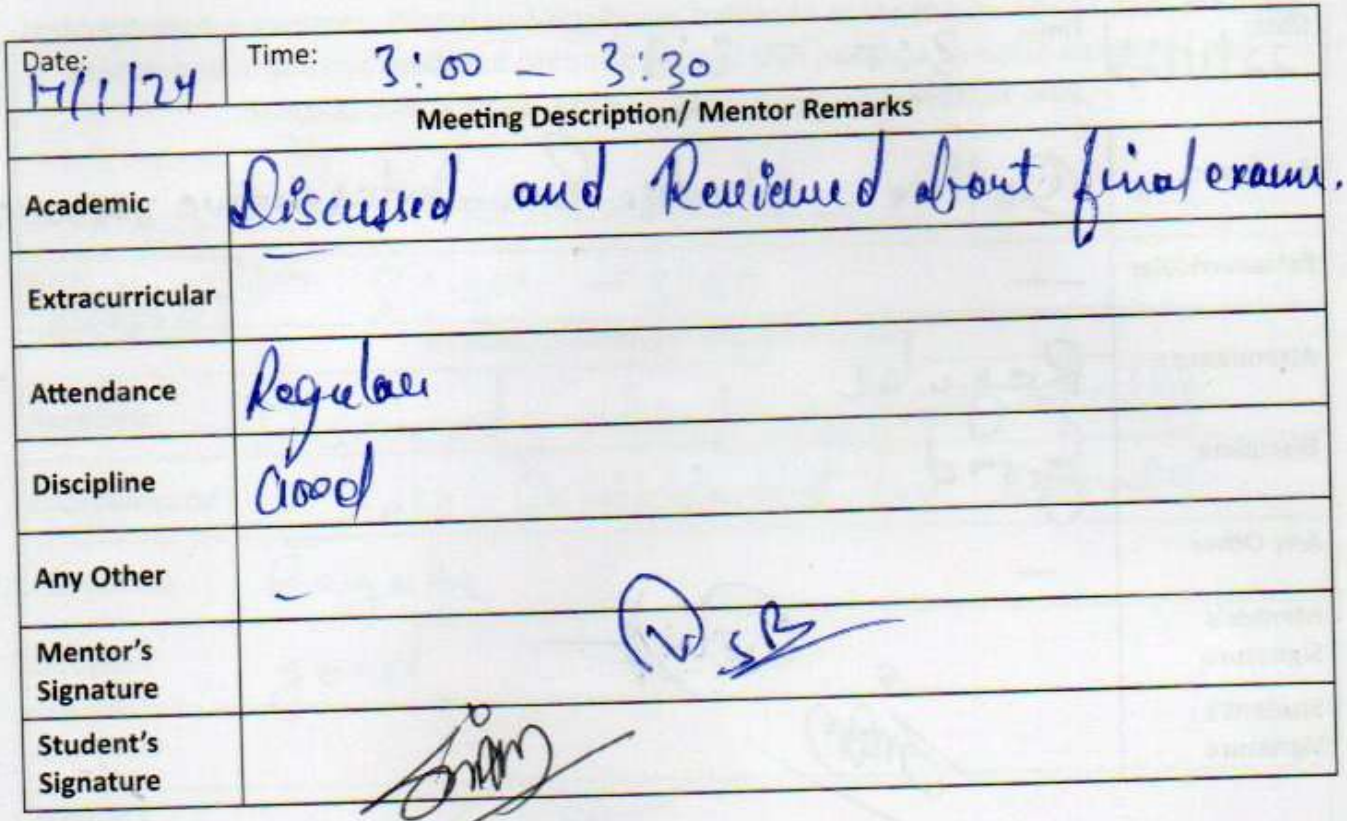 Date: Time: 3:00 – 3:30
17/1/24
Meeting Description/ Mentor Remarks
Academic Discussed and Reviewed about final exam.
Extracurricular –
Attendance Regular
Discipline Good
Any Other –
Mentor's
Signature
Student's
Signature